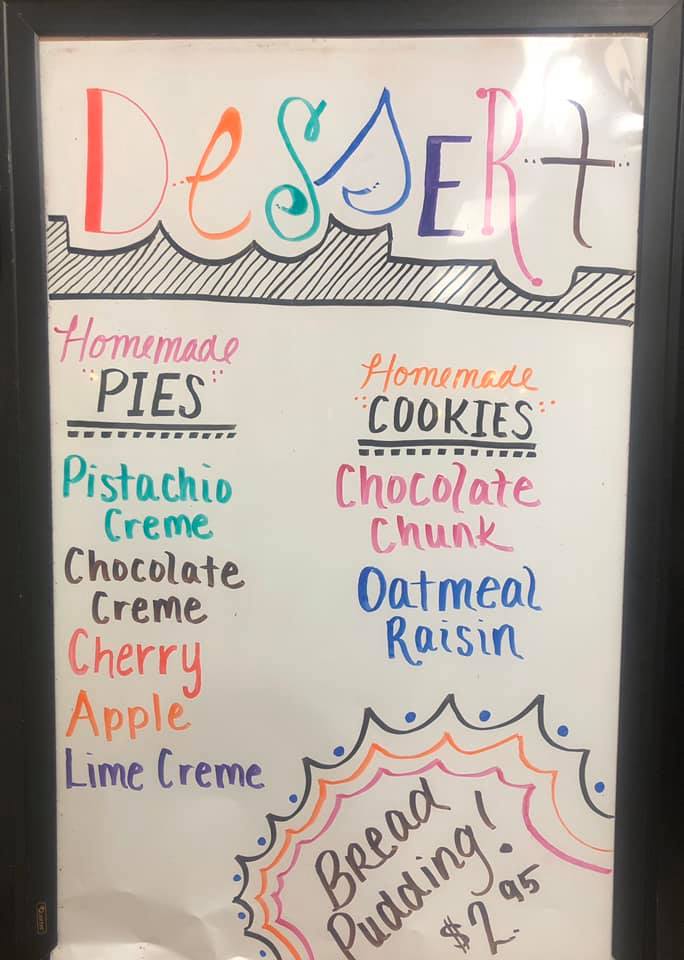 Dessert
Homemade
"PIES"
Pistachio
Creme
Chocolate
Creme
Cherry
Apple
Lime Creme
Homemade
"COOKIES"
Chocolate
Chunk
Oatmeal
Raisin
Bread
Pudding!
$2.95